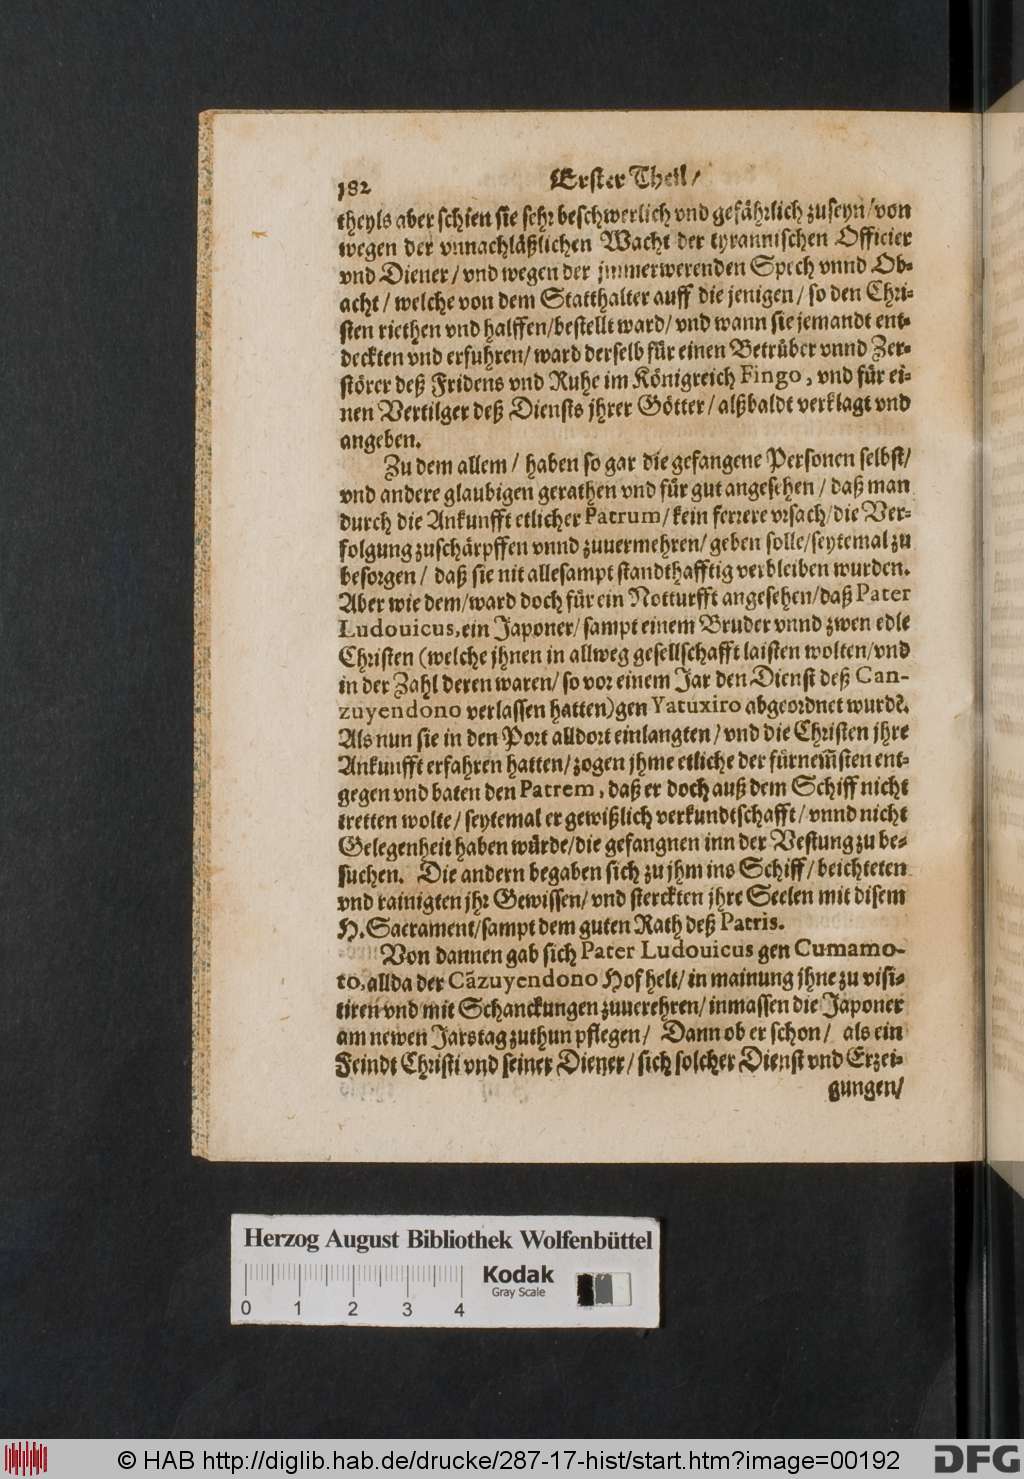 182 Erster Theil/
theyls aber schien sie sehr beschwerlich vnd gefährlich zuseyn/von
wegen der vnnachläßlichen Wacht der tyrannischen Officier
vnd Diener/ vnd wegen der jmmerwerenden Spech vnnd Ob-
acht/ welche von dem Statthalter auff die jenigen/ so den Chri-
sten riethen vnd halffen/bestellt ward/ vnd wann sie jemandt ent-
deckten vnd erfuhren/ ward derselb für einen Betrüber vnnd Zer-
störer deß Fridens vnd Ruhe im Königreich Fingo, vnd für ei-
nen Vertilger deß Diensts jhrer Götter/ alßbaldt verklagt vnd
angeben.
Zu dem allem/ haben so gar die gefangene Personen selbst/
vnd andere glaubigen gerathen vnd für gut angesehen/ daß man
durch die Ankunfft etlicher Patrum/ kein ferrere vrsach/die Ver-
folgung zuschärpffen vnnd zuuermehren/ geben solle/seytemal zu
besorgen/ daß sie nit allesampt standthafftig verbleiben wurden.
Aber wie dem/ward doch für ein Notturfft angesehen/daß Pater
Ludouicus, ein Japoner/ sampt einem Bruder vnnd zwen edle
Christen (welche jhnen in allweg gesellschafft laisten wolten/vnd
in der Zahl deren waren/ so vor einem Jar den Dienst deß Can-
zuyendono verlassen hatten) gen Yatuxiro abgeordnet wurdẽ.
Als nun sie in den Port alldort einlangten/ vnd die Christen jhre
Ankunfft erfahren hatten/ zogen jhme etliche der fürnem̃sten ent-
gegen vnd baten den Patrem, daß er doch auß dem Schiff nicht
tretten wolte/ seytemal er gewißlich verkundtschafft/ vnnd nicht
Gelegenheit haben würde/die gefangnen inn der Vestung zu be-
suchen. Die andern begaben sich zu jhm ins Schiff/ beichteten
vnd rainigten jhr Gewissen/ vnd sterckten jhre Seelen mit disem
H. Sacrament/sampt dem guten Rath deß Patris.
Von dannen gab sich Pater Ludouicus gen Cumamo-
to, allda der Cãzuyendono Hof helt/ in mainung jhne zu visi-
tiren vnd mit Schanckungen zuuerehren/ inmassen die Japoner
am newen Jarstag zuthun pflegen/ Dann ob er schon/ als ein
Feindt Christi vnd seiner Diener/ sich solcher Dienst vnd Erzei-
gungen/
Herzog August Bibliothek Wolfenbüttel
Kodak
Gray Scale
0 1 2 3 4
© HAB http://diglib.hab.de/drucke/287-17-hist/start.htm?image=00192
DFG